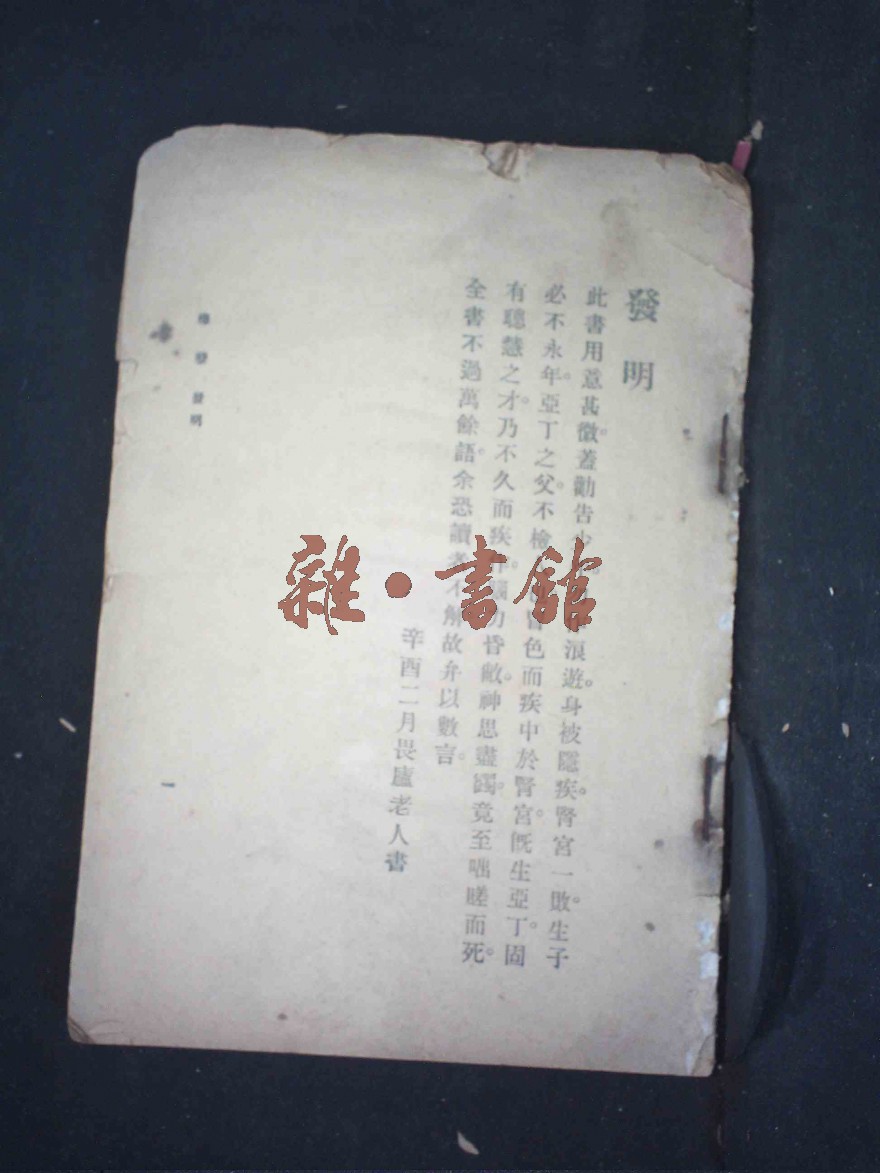 發明
此書用意甚微。蓋勸告少浪遊。身被隱疾。腎宮一敗。生子
必不永年。亞丁之父。不檢色而疾中於腎宮。既生亞丁。固
有聰慧之才。乃不久而疾昏敝。神思盡竟至咄嗟而死。
全書不過萬餘語。余恐讀者不解。故弁以數言。
辛酉二月畏廬老人書
發明
一
雜・書館